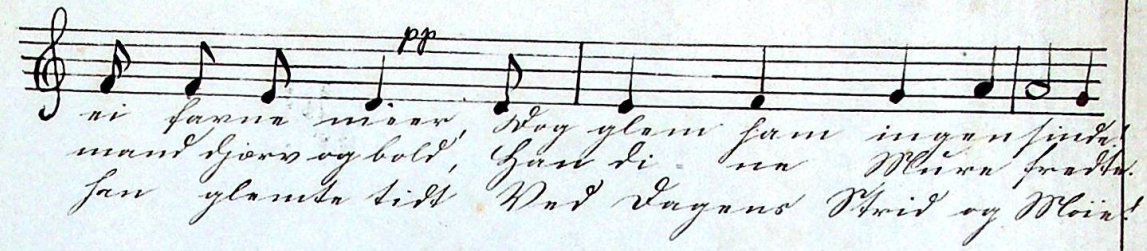 pp
ei favne meer, Dog glem ham ingensinde!
mand djærv og bold, Han di - ne Mure fredte.
han glemte tidt Ved Dagens Strid og Møie!